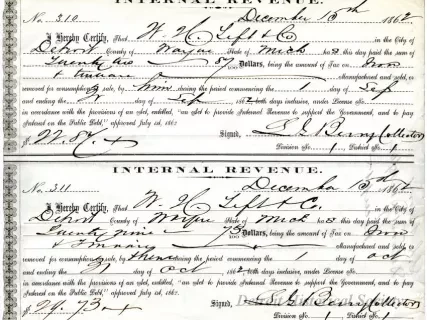 INTERNAL REVENUE.
No. 310. December 15th 1862
I Hereby Certify, That W. H. Tefft & Co in the City of
Detroit County of Wayne State of Mich has this day paid the sum of
Twenty two 87/100 Dollars, being the amount of Tax on Iron
& Manufactured and sold, or
removed for consumption or sale, by during the period commencing the 1 day of Sep
and ending the day of Sep 1862 both days inclusive, under License No.
in accordance with the provisions of an act, entitled, "an act to provide Internal Revenue to support the Government, and to pay
Interest on the Public Debt," approved July 1st, 1862.
$ 22.87. Signed, Collector,
Division No. 1 District No. 1
INTERNAL REVENUE.
No. 311. December 15th 1862
I Hereby Certify, That W. H. Tefft & C. in the City of
Detroit County of Wayne State of Mich has this day paid the sum of
Twenty nine 73/100 Dollars, being the amount of Tax on Iron
& Manufactured and sold, or
removed for consumption or sale, by them during the period commencing the 1 day of Oct
and ending the day of Oct, 1862 both days inclusive, under License No.
in accordance with the provisions of an act, entitled, "an act to provide Internal Revenue to support the Government, and to pay
Interest on the Public Debt," approved July 1st, 1862.
$ 29.73 Signed, Collector
Division No. 1 District No. 1